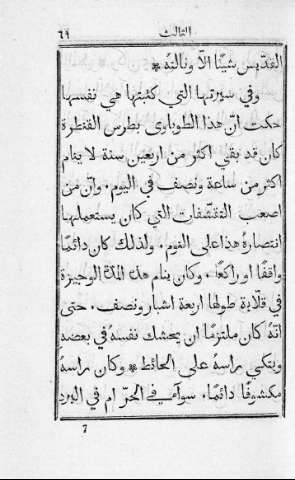 ٦٩ الثالث
القدّيس شيئًا الاّ ونالته *
وفي سيرتها التي كتبتها هي نفسها
حكت انّ هذا الطوباوي بطرس القنطرة
كان قد بقي اكثر من اربعين سنة لا ينام
اكثر من ساعة ونصف في اليوم. وانّ من
اصعب التقشّفات التي كان يستعملها
انتصاره هذا على النوم. ولذلك كان دائمًا
واقفًا او راكعًا. وكان ينام هذه المدّة الوجيزة
في قلاية طولها اربعة اشبار ونصف. حتى
انّه كان ملتزمًا ان يحشك نفسه في بعضه
ويتكي براسه على الحائط * وكان راسه
مكشوفًا دائمًا. سوا في الحرّ ام في البرد